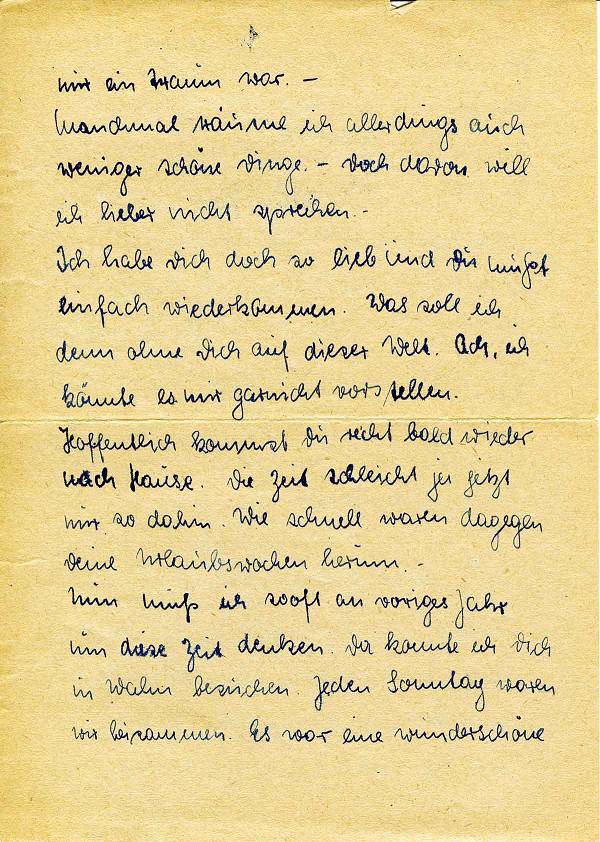 nur ein Traum war. –
Manchmal träume ich allerdings auch
weniger schöne Dinge. – Doch davon will
ich lieber nicht sprechen. –
Ich habe Dich doch so lieb und Du mußt
einfach wiederkommen. Was soll ich
denn ohne Dich auf dieser Welt. Ach, ich
könnte es mir garnicht vorstellen.
Hoffentlich kommst Du recht bald wieder
nach Hause. Die Zeit schleicht ja jetzt
nur so dahin. Wie schnell waren dagegen
Deine Urlaubswochen herum. –
Nun muß ich sooft an voriges Jahr
um diese Zeit denken. Da konnte ich Dich
in Wahn besuchen. Jeden Sonntag waren
wir beisammen. Es war eine wunderschöne